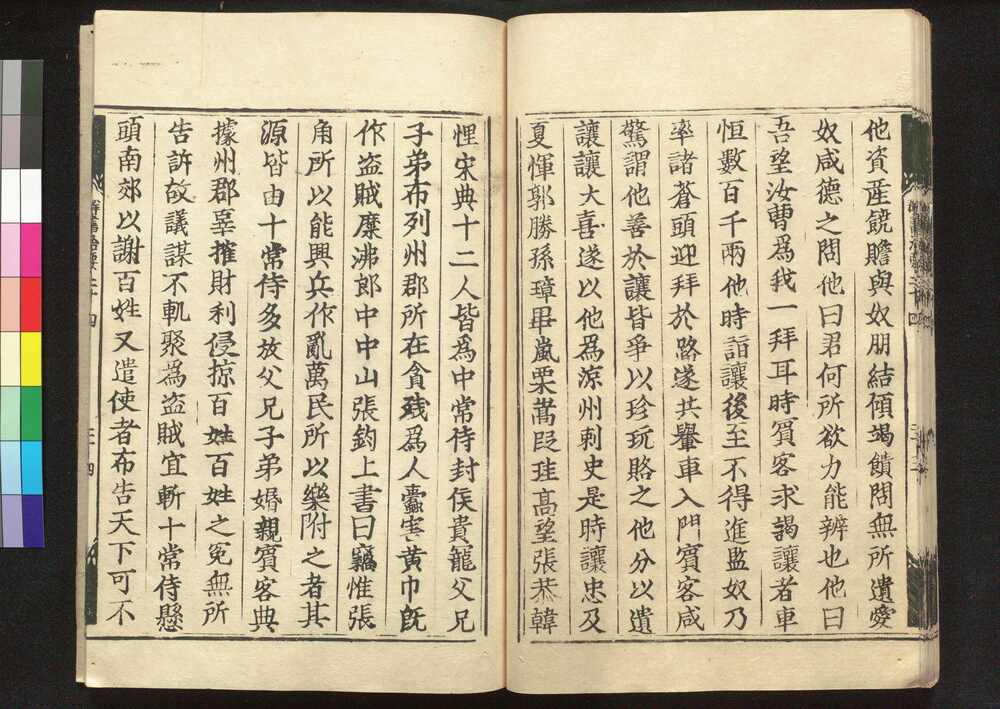 他資產饒贍與奴朋結傾竭饋問無所遺愛
奴咸德之問他曰君何所欲力能辨也他曰
吾望汝曹爲我一拜耳時賓客求謁讓者車
恒數百千兩他時詣讓後至不得進監奴乃
率諸蒼頭迎拜於路遂共轝車入門賓客咸
驚謂他善於讓皆爭以珍玩賂之他分以遺
讓讓大喜遂以他爲涼州刺史是時讓忠及
夏惲郭勝孫璋畢嵐栗嵩段珪高望張恭韓
悝宋典十二人皆爲中常侍封侯貴寵父兄
子弟布列州郡所在貪殘爲人蠹害黃巾旣
作盜賊糜沸郎中中山張鈞上書曰竊惟張
角所以能興兵作亂萬民所以樂附之者其
源皆由十常侍多放父兄子弟婚親賓客典
據州郡辜搉財利侵掠百姓百姓之冤無所
告訴故議謀不軌聚爲盜賊宜斬十常侍懸
頭南郊以謝百姓又遣使者布告天下可不
群書治要二十四
二十四